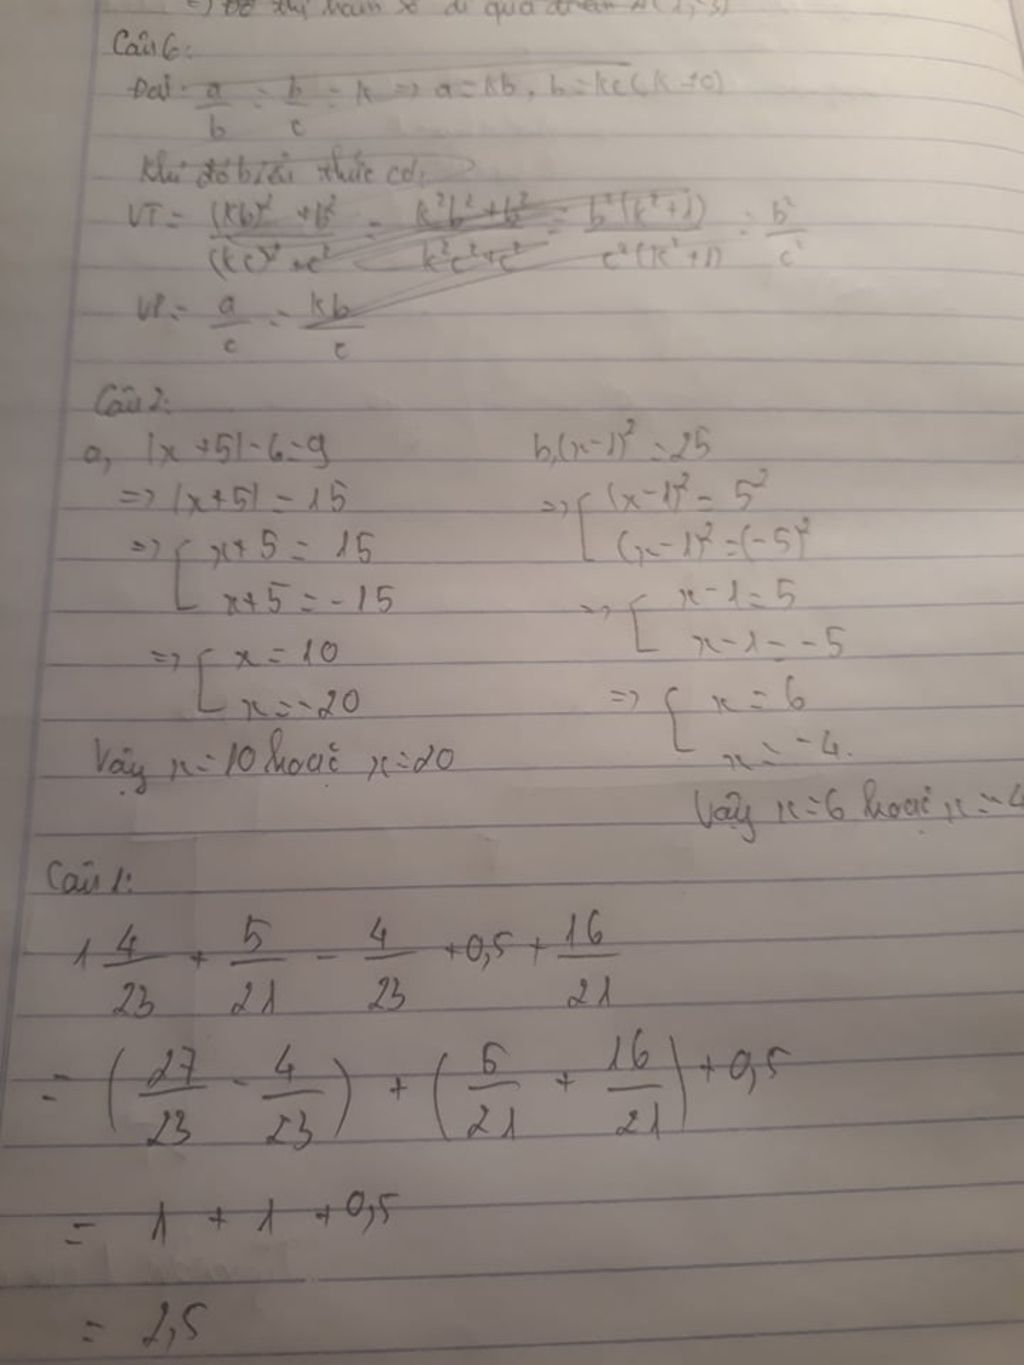 => Đồ thị hàm số đi qua điểm A(1;-3)
Câu 6:
Đặt: a/b = b/c = k => a = kb, b = kc (k ≠ 0)
Khi đó biểu thức có:
VT = ((kb)² + b²)/((kc)² + c²) = (k²b² + b²)/(k²c² + c²) = b²(k²+1)/c²(k²+1) = b²/c²
VP = a/c = kb/c
Câu 2:
a, |x+5| - 6 = 9
=> |x+5| = 15
=> [ x+5 = 15
x+5 = -15
=> [ x = 10
x = -20
Vậy x = 10 hoặc x = 20
b, (x-1)² = 25
=> [ (x-1)² = 5²
(x-1)² = (-5)²
=> [ x-1 = 5
x-1 = -5
=> [ x = 6
x = -4.
Vậy x = 6 hoặc x = -4
Câu 1:
1 4/23 + 5/21 - 4/23 + 0,5 + 16/21
= (27/23 - 4/23) + (5/21 + 16/21) + 0,5
= 1 + 1 + 0,5
= 2,5